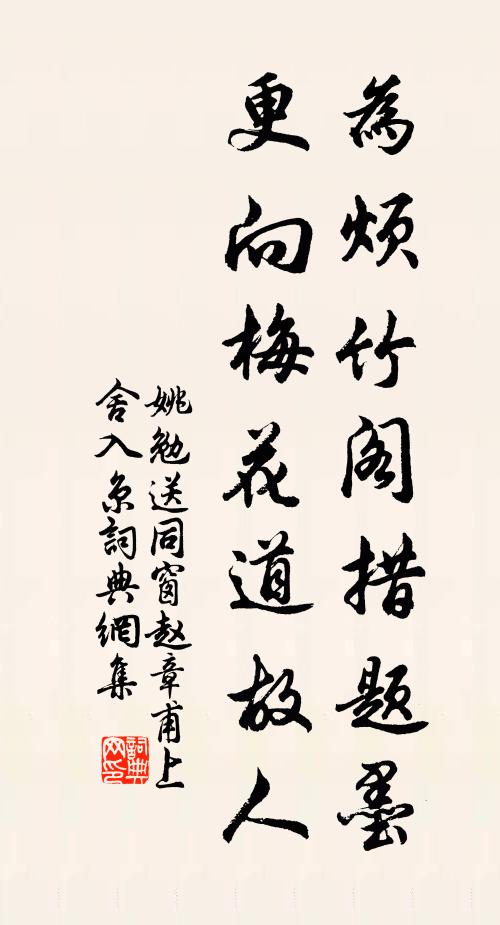 為烦竹阁措题墨
更向梅花道故人
姚勉送同窗赵章甫上
舍入京詞典網集
詞典网印